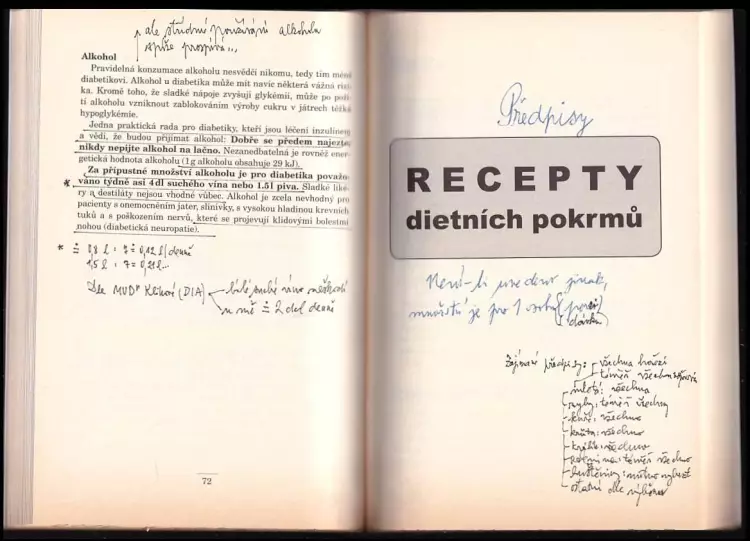 ale střídmé používání alkoholu
spíše prospívá...
Alkohol
Pravidelná konzumace alkoholu nesvědčí nikomu, tedy tím méně
diabetikovi. Alkohol u diabetika může mít navíc některá vážná rizi-
ka. Kromě toho, že sladké nápoje zvyšují glykémii, může po
tí alkoholu vzniknout zablokováním výroby cukru v játrech těžk
hypoglykémie.
Jedna praktická rada pro diabetiky, kteří jsou léčení inzulinem
a vědí, že budou přijímat alkohol: Dobře se předem najezte,
nikdy nepijte alkohol na lačno. Nezanedbatelná je rovněž ener-
getická hodnota alkoholu (1 g alkoholu obsahuje 29 kJ).
Za přípustné množství alkoholu je pro diabetika považo-
* váno týdně asi 4 dl suchého vína nebo 1.5l piva. Sladké liké-
ry a destiláty nejsou vhodné vůbec. Alkohol je zcela nevhodný pro
pacienty s onemocněním jater, slinivky, s vysokou hladinou krevních
tuků a s poškozením nervů, které se projevují klidovými bolestmi
nohou (diabetická neuropatie).
* ≐ 0,8 l : 7 = 0,12 l/denně
1,5 l : 7 = 0,21 l...
Dle MUDr Klikové (DIA)
bílé suché víno
u mě ≐ 2 dcl denně
72
Předpisy
RECEPTY
dietních pokrmů
Není-li uvedeno jinak,
množství je pro 1 osobu
dávku)
Zajímavé předpisy: všechna hovězí
téměř všechna
všechna
ryby: téměř všechny
kuře: všechno
krůta: všechno
králík: všechno
zelenina: téměř všechno
luštěniny: nutno vybrat
ostatní dle výběru